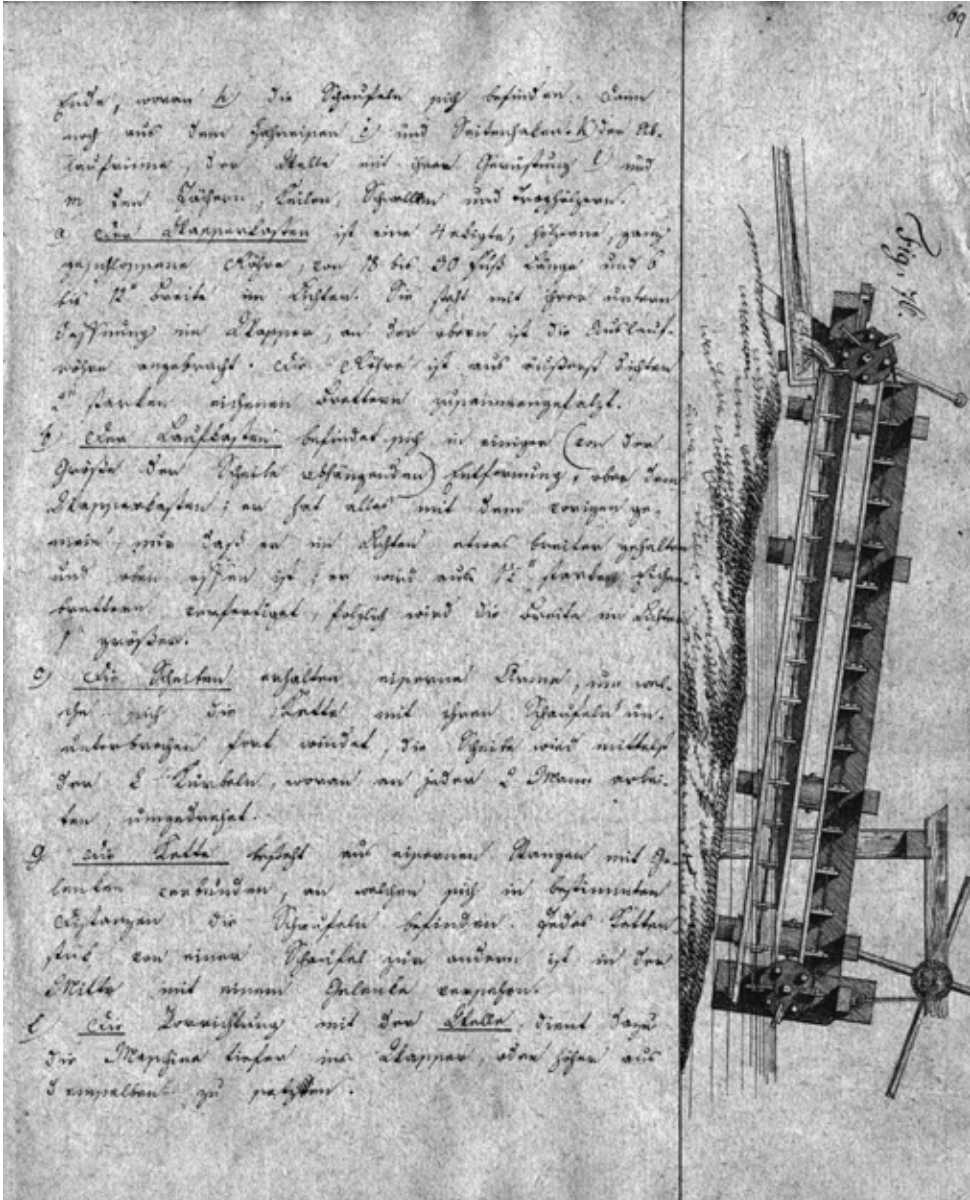 69
Ende, woran h) die Schaufeln sich befinden. Dann
noch aus dem Zahneisen i) und Seitenhaken k) der Ab-
laufrinne, der Welle mit ihrer Gerüstung l) und
m den Dächern, Keilen, Schwellen und Kropfhölzern.
a. Der Wasserkasten ist eine 4 ekigte, hölzerne, ganz
geschlossene Röhre, von 18 bis 30 Fuß Länge und 6
bis 12" Breite im Lichten. Sie steht mit ihrer untern
Oeffnung im Wasser, an der obern ist die Auslauf-
röhre angebracht. Die Röhre ist aus äußerst dichten
2" starken eichenen Brettern zusammengefalzt.
b) Der Laufkasten befindet sich in einiger (von der
Größe der Scheibe abhängenden) Entfernung, ober dem
Wasserkasten; er hat alles mit dem vorigen ge-
mein, nur daß er im Lichten etwas breiter gehalten
und oben offen ist; er wird aus 1½" starken Eichen-
brettern verfertiget, folglich wird die Breite im Lichten
1" größer.
c) Die Scheiben erhalten eiserne Arme, um wel-
che sich die Kette mit ihren Schaufeln un-
unterbrochen fort windet, die Scheibe wird mittelst
der 2 Kurbeln, woran an jeder 2 Mann arbei-
ten, umgedrehet.
g Die Kette besteht aus eisernen Stangen mit Ge-
lenken verbunden, an welchen sich in bestimmten
Distanzen die Schaufeln befinden. Jedes Ketten-
stük von einer Schaufel zur andern ist in der
Mitte mit einem Gelenke versehen.
l) Die Vorrichtung mit der Welle, dient dazu
die Maschine tiefer ins Wasser, oder höher aus
demselben zu
Fig. 76.